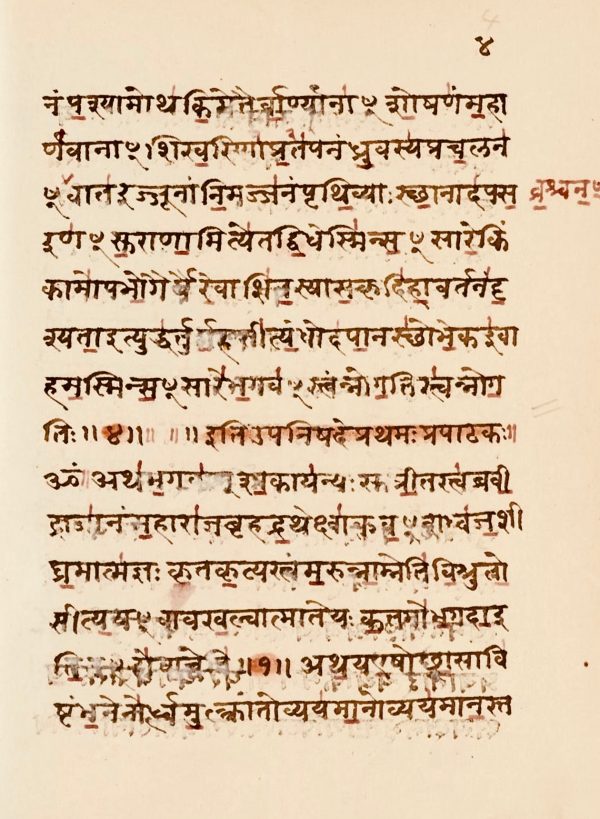 ४
नंपश्यामोथकिमेतैर्वाण्यानाꣳशोषणंमहा
र्णवानाꣳशिखरिणांप्रतपनंध्रुवस्यप्रचलन
ꣳवातरज्जूनांनिमज्जनंपृथिव्याःस्छानादपस
व्रश्चनꣳ
रणꣳसुराणामित्येतद्विधेस्मिन्सꣳसारेकिं
कामोपभोगैर्यैरेवाशितस्यासकृदिहावर्तनंदृ
श्यताइत्युद्धर्तुमर्हसीत्यंधोदपानस्छोभेकइवा
हमस्मिन्सꣳसारेभगवꣳस्त्वंन्नोगतिस्त्वंन्नोग
तिः॥४॥ ॥ ॥इतिउपनिषदेप्रथमःप्रपाठकः॥
ॐ अथभगवाꣳशाकायन्यःसुप्रीतस्त्वब्रवी
द्राजानंमहाराजबृहद्रथेक्ष्वाकुवꣳशध्वजशी
घ्रमात्मज्ञःकृतकृत्यस्त्वंमरुन्नाम्नेतिविश्रुतो
सीत्ययꣳवावखल्वात्मातेयःकतमोभगवाइ
तितꣳहोवाचेति॥१॥ अथयएषोछ्वासावि
ष्टंभनेनोर्ध्वमुत्क्रांतोव्ययमानोव्ययमानस्त